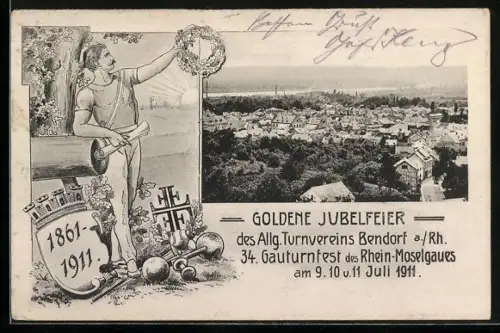 Besten Gruß
GOLDENE JUBELFEIER
des Allg. Turnvereins Bendorf a/Rh.
34. Gauturnfest des Rhein-Moselgaues
am 9. 10 u. 11 Juli 1911.
1861-
1911.